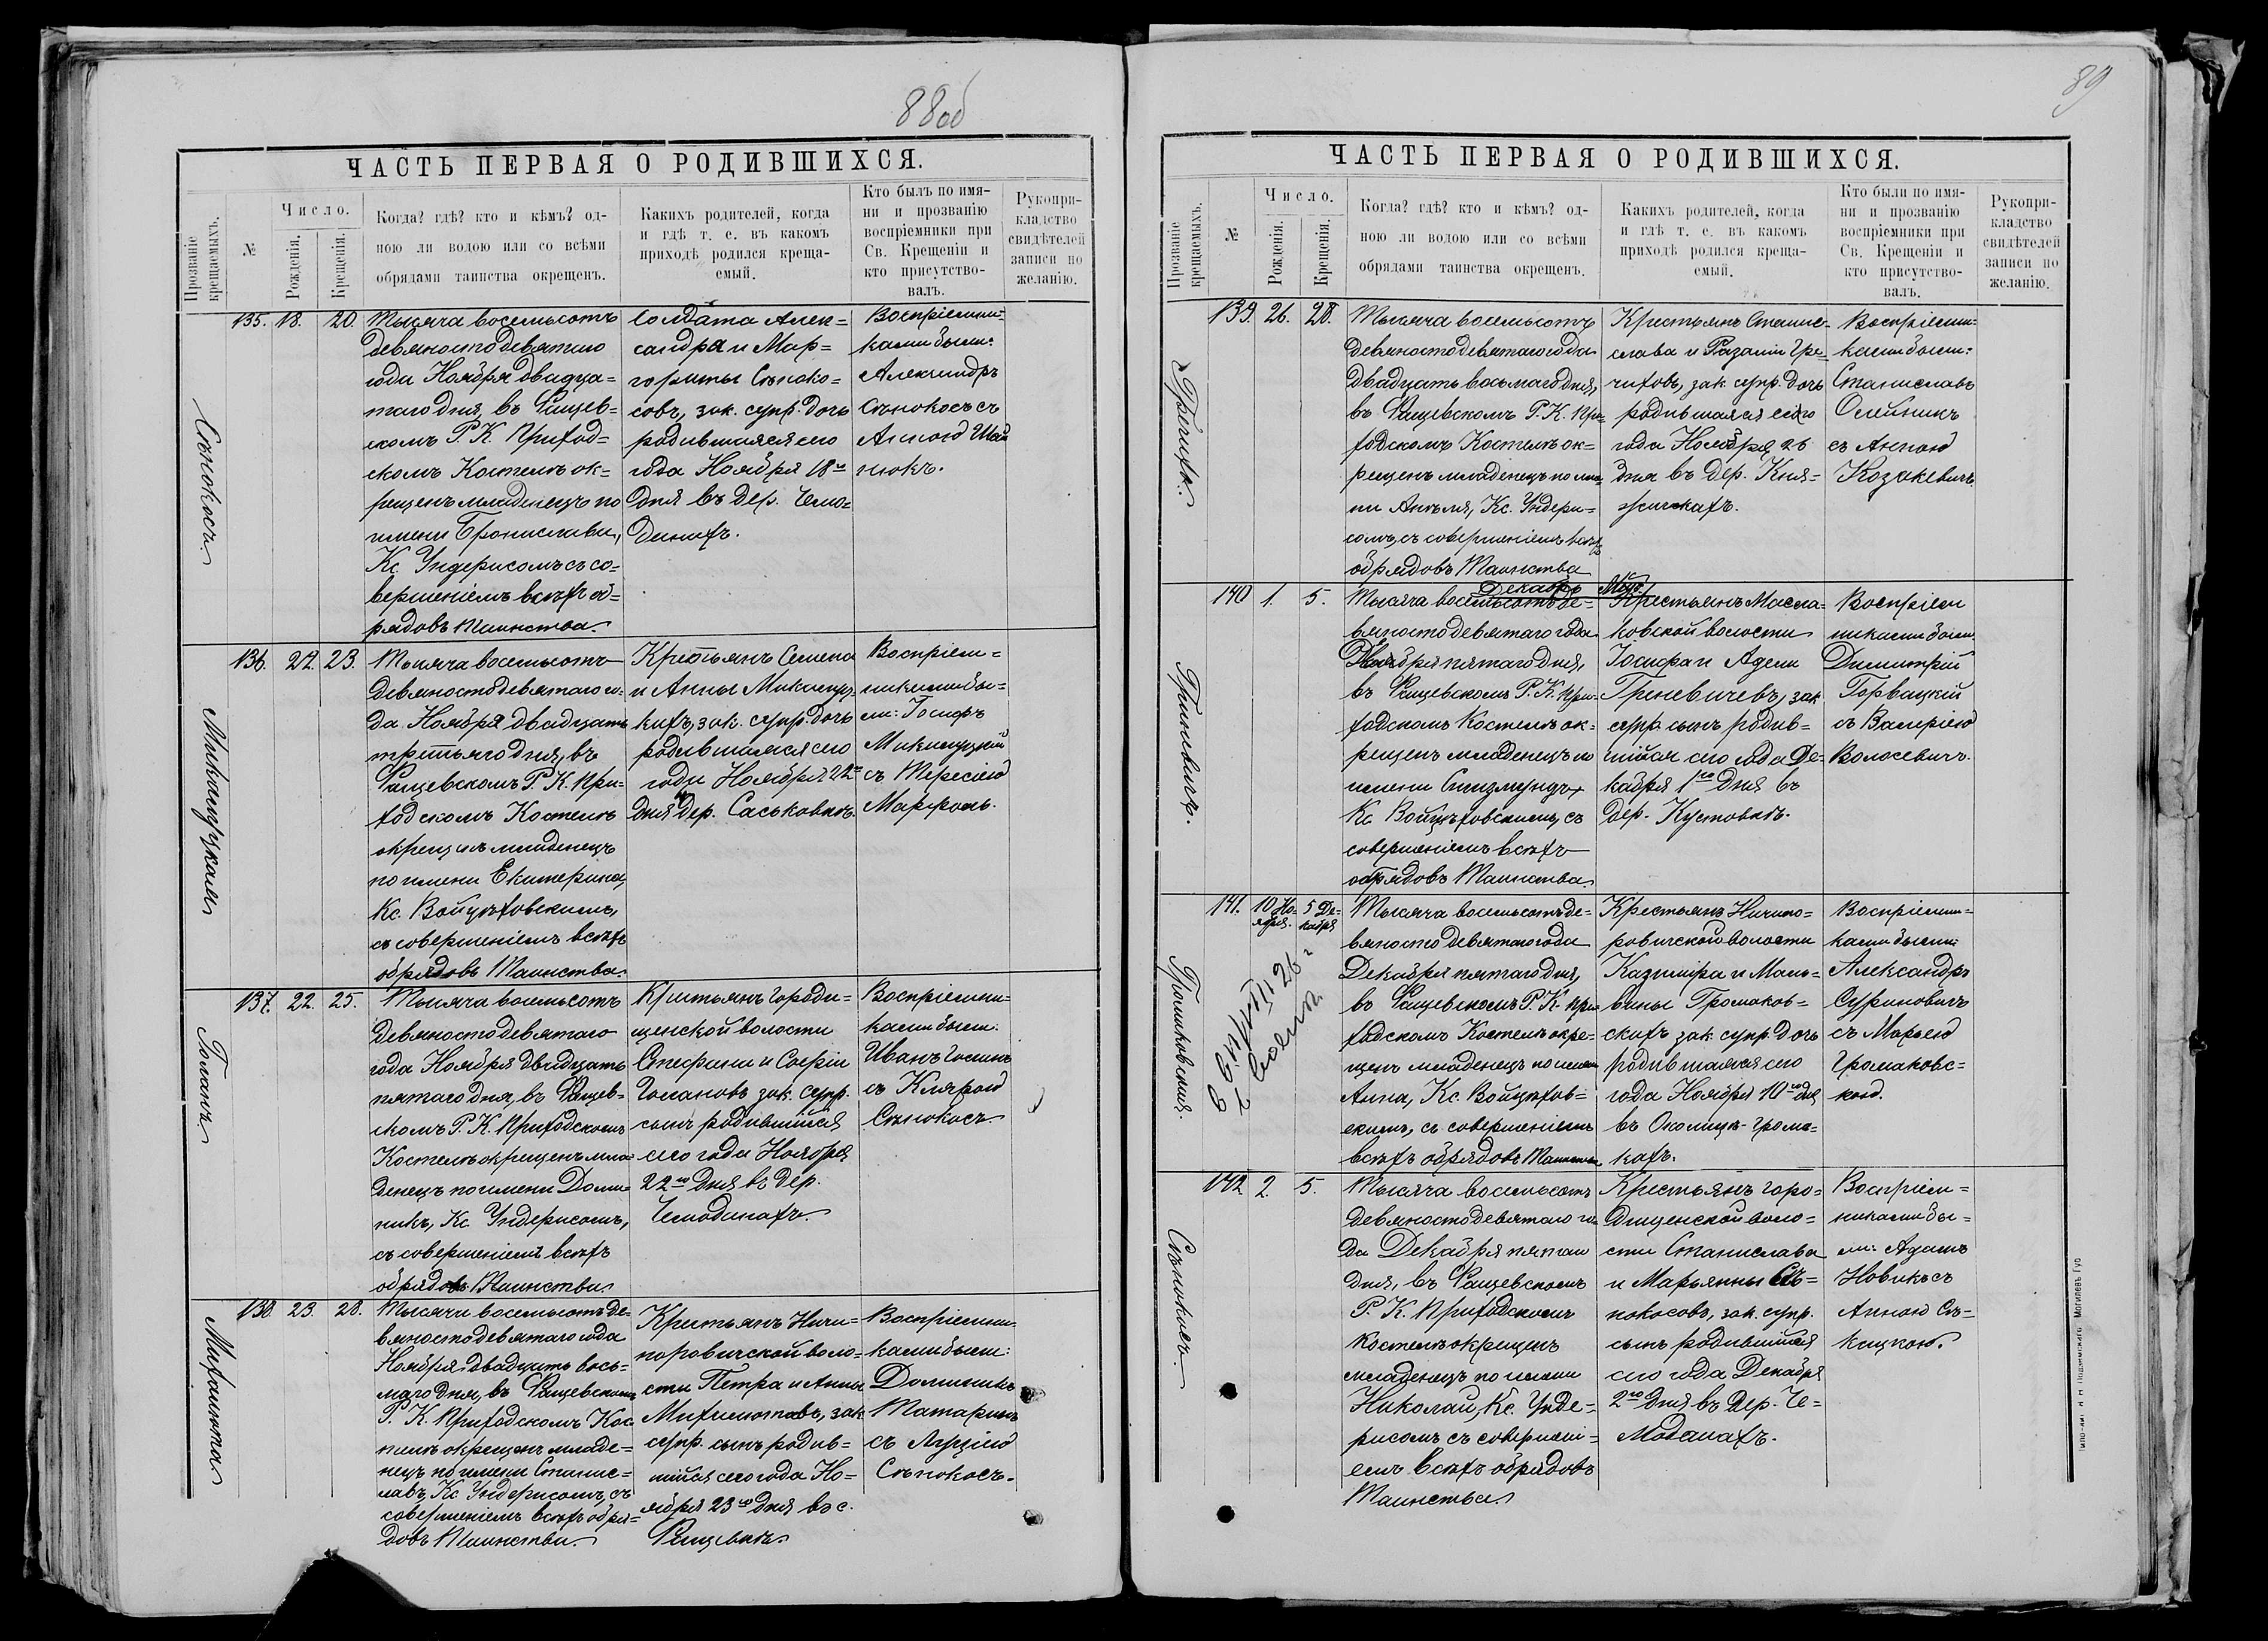 88об
ЧАСТЬ ПЕРВАЯ О РОДИВШИХСЯ.
Прозваніе крещаемыхъ.
№
Число.
Рожденія.
Крещенія.
Когда? гдѣ? кто и кѣмъ? од-
ною ли водою или со всѣми
обрядами таинства окрещенъ.
Какихъ родителей, когда
и гдѣ т. е. въ какомъ
приходѣ родился креща-
емый.
Кто былъ по имя-
ни и прозванію
воспріемники при
Св. Крещеніи и
кто присутство-
валъ.
Рукопри-
кладство
свидѣтелей
записи по
желанію.
Сѣнокосъ
135. 18. 20.
Тысяча восемьсотъ
девяностодевятаго
года Ноября двадца=
таго дня, въ Рищев=
скомъ Р. К. Приход=
скомъ Костелѣ ок=
рещенъ младенецъ по
имени Бронислава,
Кс. Ундерисомъ съ со=
вершеніемъ всѣхъ об=
рядовъ Таинства.
Солдата Алек=
сандра и Мар=
гориты Сѣноко=
совъ, зак. супр. дочь
родившаяся сего
года Ноября 18го
дня въ дер. Чемо=
данахъ.
Воспріемни=
ками были:
Александръ
Сѣнокосъ съ
Анною
нюкъ.
136. 22. 23.
Тысяча восемьсотъ
девяностодевятаго го=
да Ноября двадцать
третьяго дня, въ
Рищевскомъ Р. К. При=
ходскомъ Костелѣ
окрещенъ младенецъ
по имени Екатерина,
Кс. Войцѣховскимъ,
съ совершеніемъ всѣхъ
обрядовъ Таинства.
Крестьянъ Семена
и Анны
кихъ, зак. супр. дочь
родившаяся сего
года Ноября 22го
дня въ дер. Саськовкѣ.
Воспріем=
никами бы=
ли: Іосифъ
съ Тересіею
Голанъ
137. 22. 25.
Тысяча восемьсотъ
девяностодевятаго
года Ноября двадцать
пятаго дня, въ Рищев=
скомъ Р. К. Приходскомъ
Костелѣ окрещенъ мла=
денецъ по имени Доми=
никъ, Кс. Ундерисомъ,
съ совершеніемъ всѣхъ
обрядовъ Таинства.
Крестьянъ Городи=
щенской волости
Стефана и Софіи
Голановъ зак. супр.
сынъ родившійся
сего года Ноября
22го дня въ дер.
Чемоданахъ.
Воспріемни=
ками были:
Иванъ Голанъ
съ Клярою
Сѣнокосъ.
138. 23. 28.
Тысяча восемьсотъ де=
вяностодевятаго года
Ноября двадцать вось=
маго дня, въ Рищевскомъ
Р. К. Приходскомъ Кос
телѣ окрещенъ младе=
нецъ по имени Станис=
лавъ, Кс. Ундерисомъ, съ
совершеніемъ всѣхъ обря=
довъ Таинства.
Крестьянъ Ничи=
поровичской воло=
сти Петра и Анны
зак.
супр. сынъ родив=
шійся сего года Но=
ября 23го дня въ с.
Воспріемни=
ками были:
Доминикъ
Татаринъ
съ Луціею
Сѣнокосъ.
89
ЧАСТЬ ПЕРВАЯ О РОДИВШИХСЯ.
Прозваніе крещаемыхъ.
№
Число.
Рожденія.
Крещенія.
Когда? гдѣ? кто и кѣмъ? од-
ною ли водою или со всѣми
обрядами таинства окрещенъ.
Какихъ родителей, когда
и гдѣ т. е. въ какомъ
приходѣ родился креща-
емый.
Кто были по имя-
ни и прозванію
воспріемники при
Св. Крещеніи и
кто присутство-
валъ.
Рукопри-
кладство
свидѣтелей
записи по
желанію.
139. 26. 28.
Тысяча восемьсотъ
девяностодевятаго года
двадцать восьмаго дня,
въ Рищевскомъ Р. К. При=
ходскомъ Костелѣ ок=
рещенъ младенецъ по име=
ни Анѣля, Кс. Ундери=
сомъ, съ совершеніемъ всѣхъ
обрядовъ Таинства
Крестьянъ Станис=
лава и Розаліи Гре=
чиховъ, зак. супр. дочь
родившаяся сего
года Ноября 26
дня въ дер. Кня=
жичкахъ.
Воспріемни=
ками были:
Станиславъ
Олейникъ
съ Анною
Козакевичъ.
Декабрь Мѣс.
Гриневичъ.
140 1. 5.
Тысяча восемьсотъ де=
вяностодевятаго года
Декабря пятаго дня,
въ Рищевскомъ Р. К. При=
ходскомъ Костелѣ ок=
рещенъ младенецъ по
имени Сигизмундъ,
Кс. Войцѣховскимъ, съ
совершеніемъ всѣхъ
обрядовъ Таинства.
Крестьянъ Масла=
ковской волости
Іосифа и Адели
Гриневичевъ, зак.
супр. сынъ родив=
шійся сего года Де=
кабря 1го дня въ
дер. Кустовкѣ.
Воспріем
никами были
Димитрій
Горвацкій
съ Валеріею
Волосевичъ.
Громаковская.
141. 10 Но=
ября. 5 Де=
кабря
Тысяча восемьсотъ де=
вяностодевятаго года
Декабря пятаго дня,
въ Рищевскомъ Р. К. При
ходскомъ Костелѣ окре=
щенъ младенецъ по имени
Анна, Кс. Войцѣхов=
скимъ, съ совершеніемъ
всѣхъ обрядовъ Таинства
Крестьянъ Ничипо=
ровичской волости
Казиміра и Маль=
вины Громаков=
скихъ зак. супр. дочь
родившаяся сего
года Ноября 10го дня
въ Околицѣ-Грома=
кахъ.
Воспріемни=
ками были:
Александръ
Суриновичъ
съ Марьею
Громаковс=
кою.
Сѣнокосъ.
142 2. 5.
Тысяча восемьсотъ
девяностодевятаго го=
да Декабря пятаго
дня, въ Рищевскомъ
Р. К. Приходскомъ
Костелѣ окрещенъ
младенецъ по имени
Николай, Кс. Унде=
рисомъ съ совершені=
емъ всѣхъ обрядовъ
Таинства.
Крестьянъ Горо=
дищенской воло=
сти Станислава
и Марьянны Сѣ=
нокосовъ, зак. супр.
сынъ родившійся
сего года Декабря
2го дня въ дер. Че=
моданахъ.
Воспріем=
никами бы=
ли: Адамъ
Новикъ съ
Анною Сѣ=
кицкою.